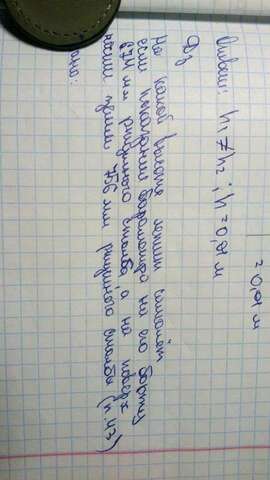 = 0,04 м
Ответ: h₁ ≠ h₂ ; h = 0,04 м
Дз
На какой высоте летит самолёт
если показания барометра на его борту
674 мм ртутного столба, а на поверх-
ности земли 756 мм ртутного столба? (984 м)
ано: